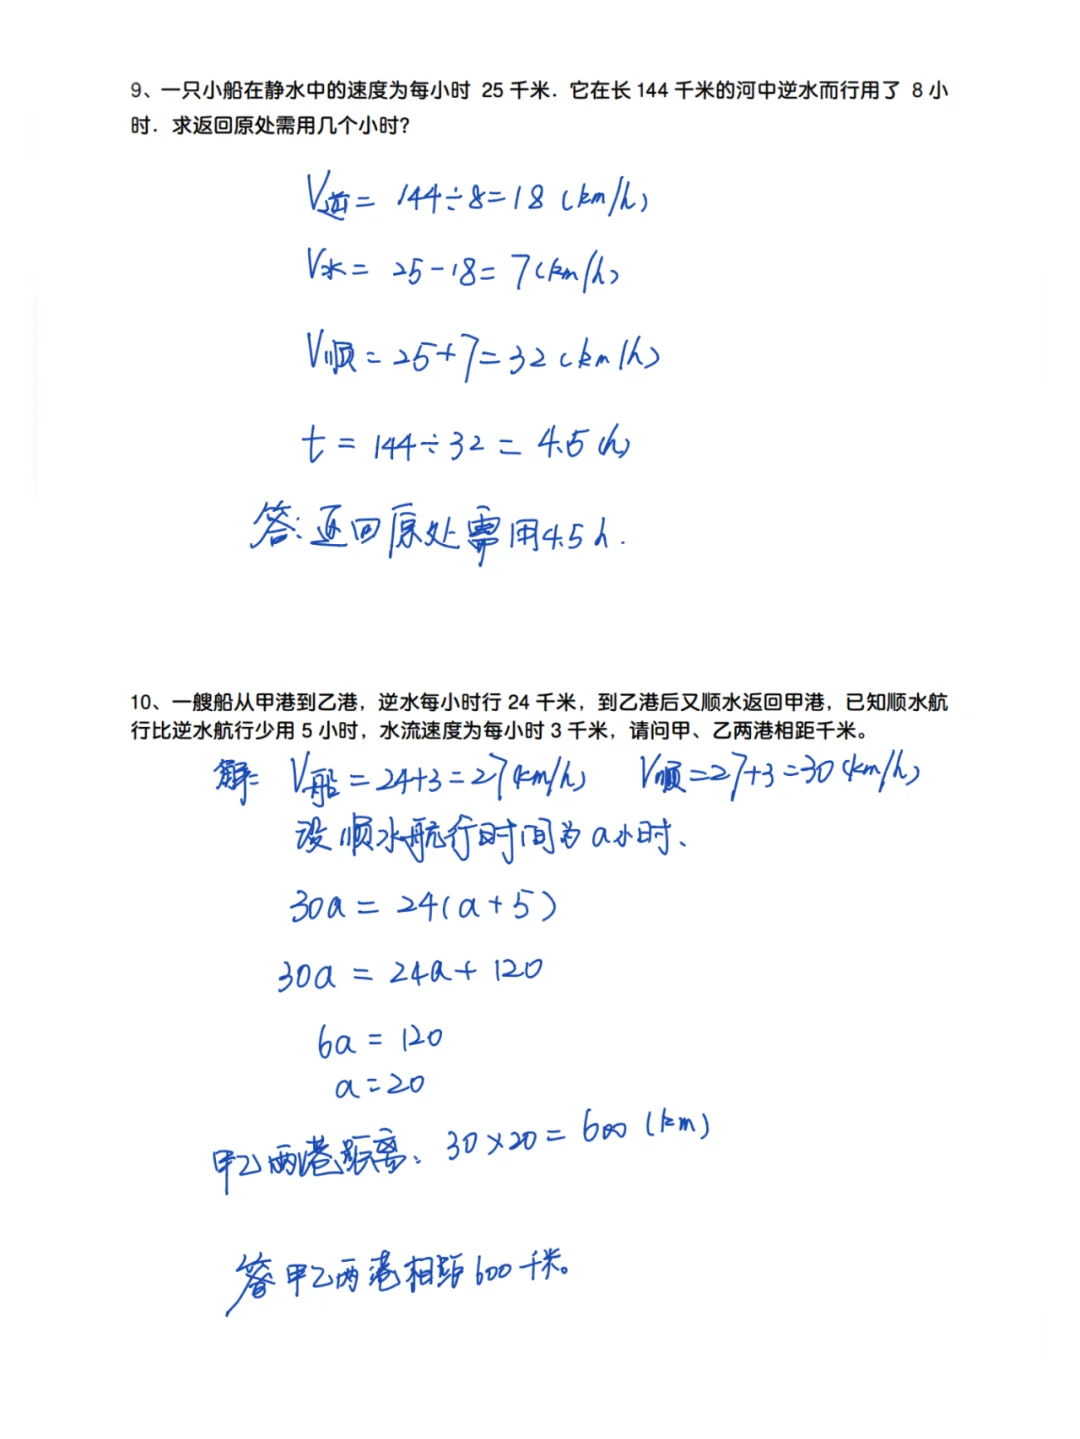 9、一只小船在静水中的速度为每小时 25 千米．它在长 144 千米的河中逆水而行用了 8 小
时．求返回原处需用几个小时？
V逆 = 144÷8=18 (km/h)
V水 = 25-18= 7(km/h)
V顺 = 25+7=32 (km/h)
t = 144÷32 = 4.5 (h)
答:返回原处需用4.5h.
10、一艘船从甲港到乙港，逆水每小时行 24 千米，到乙港后又顺水返回甲港，已知顺水航
行比逆水航行少用 5 小时，水流速度为每小时 3 千米，请问甲、乙两港相距千米。
解: V船 =24+3=27(km/h) V顺=27+3=30(km/h)
设顺水航行时间为a小时、
30a = 24(a+5)
30a = 24a+ 120
6a = 120
a=20
甲乙两港距离: 30×20= 600 (km)
答甲乙两港相距600千米。